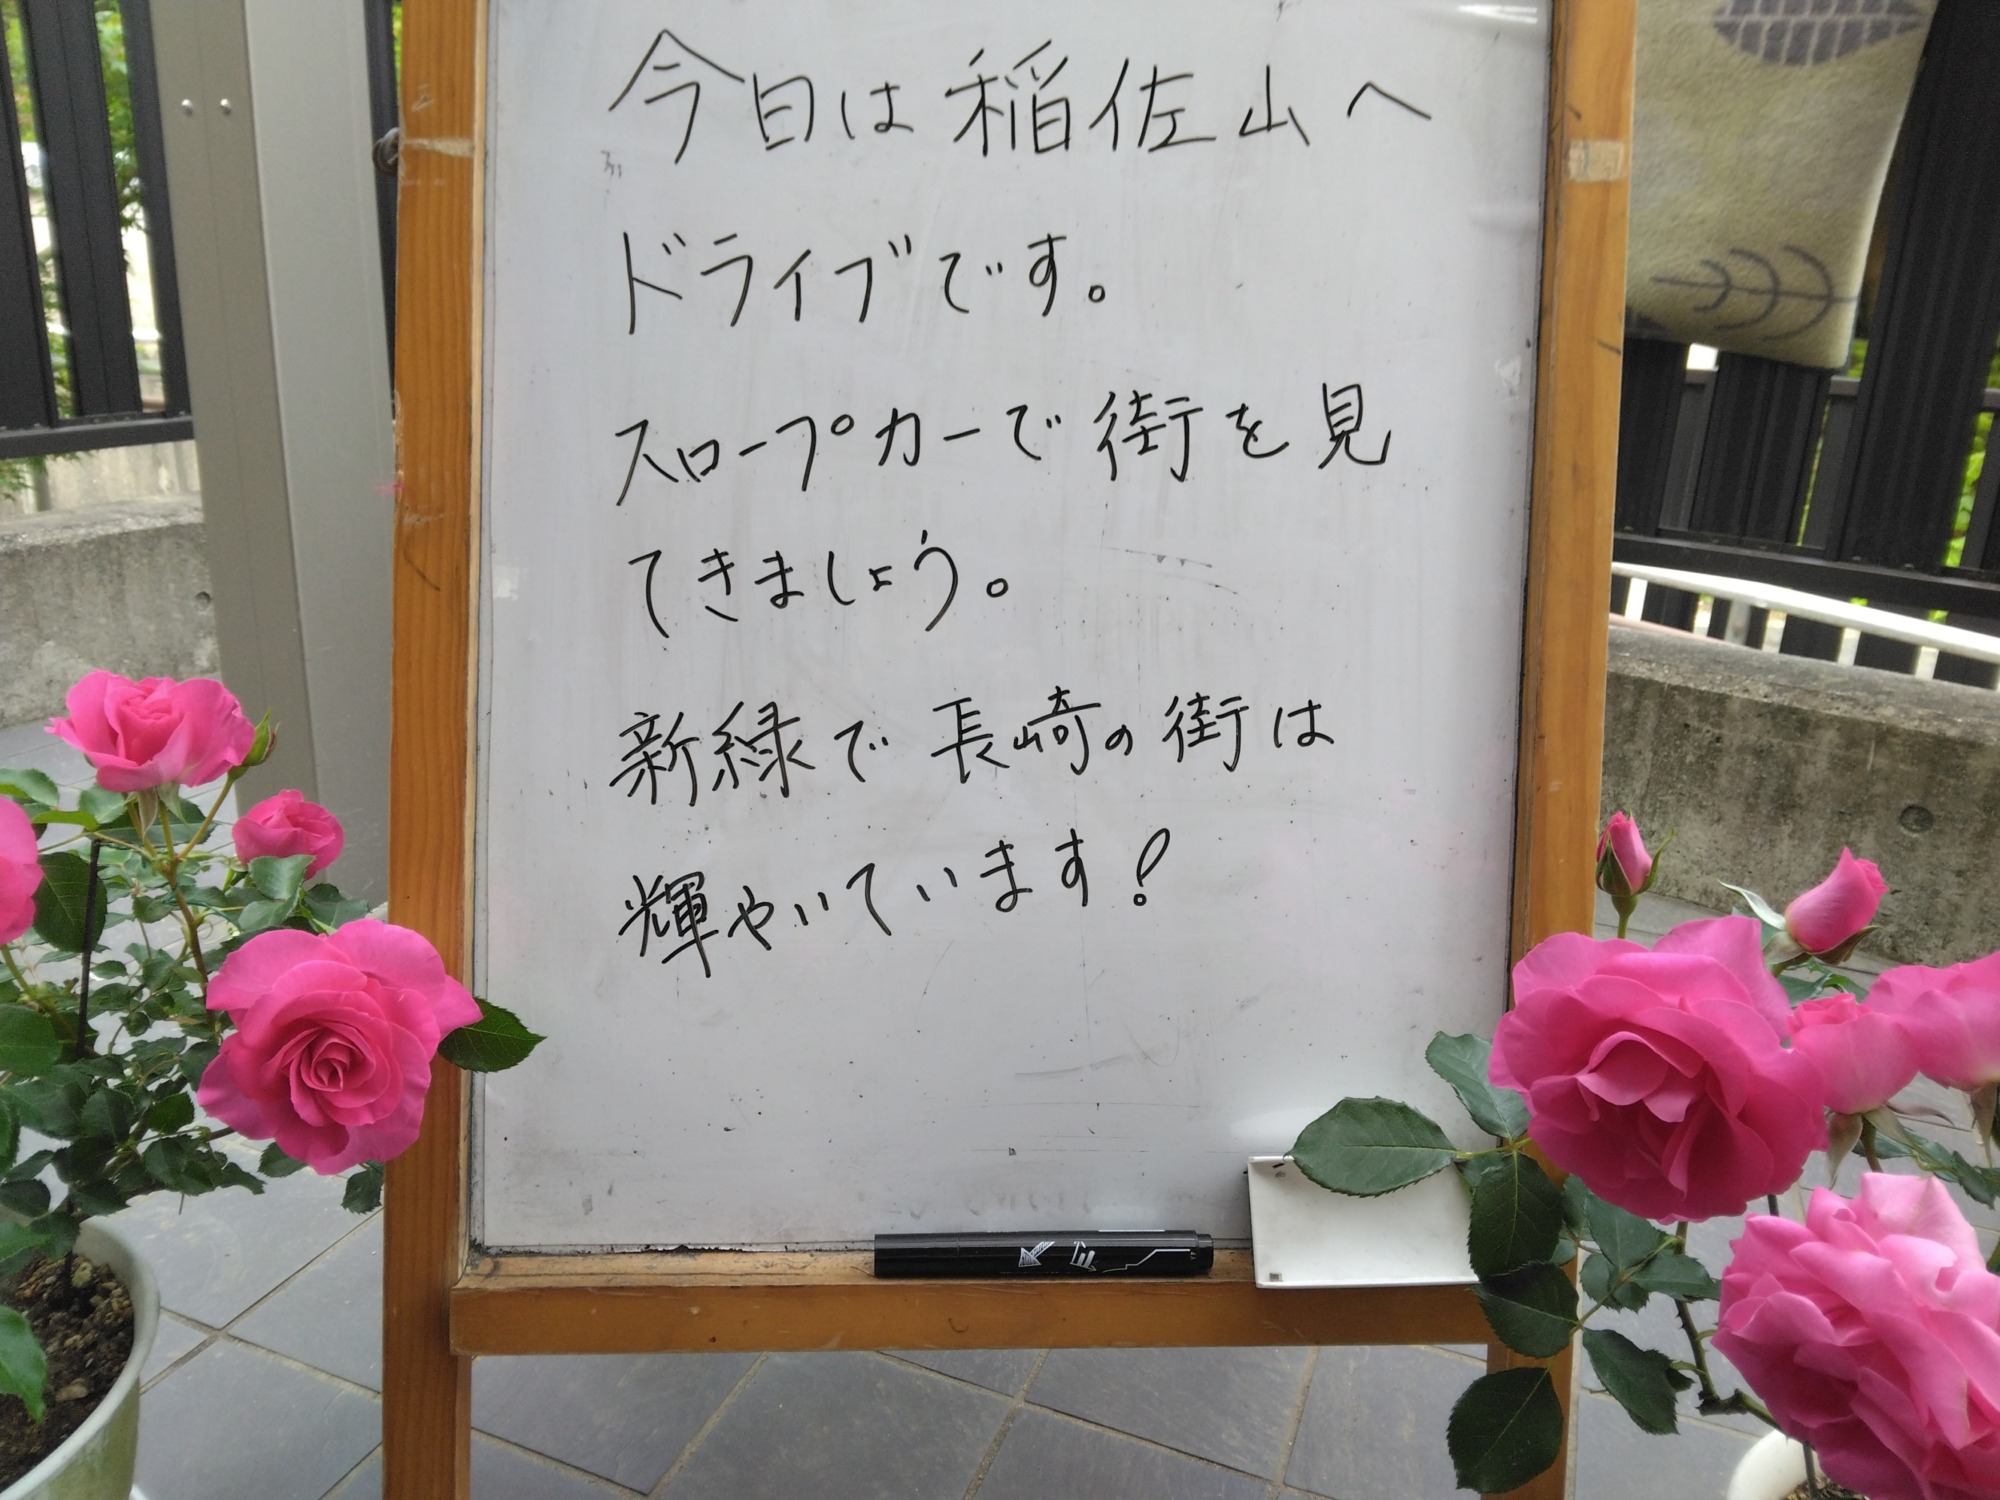 今日は稲佐山へ
ドライブです。
スロープカーで街を見
てきましょう。
新緑で長崎の街は
輝やいています!